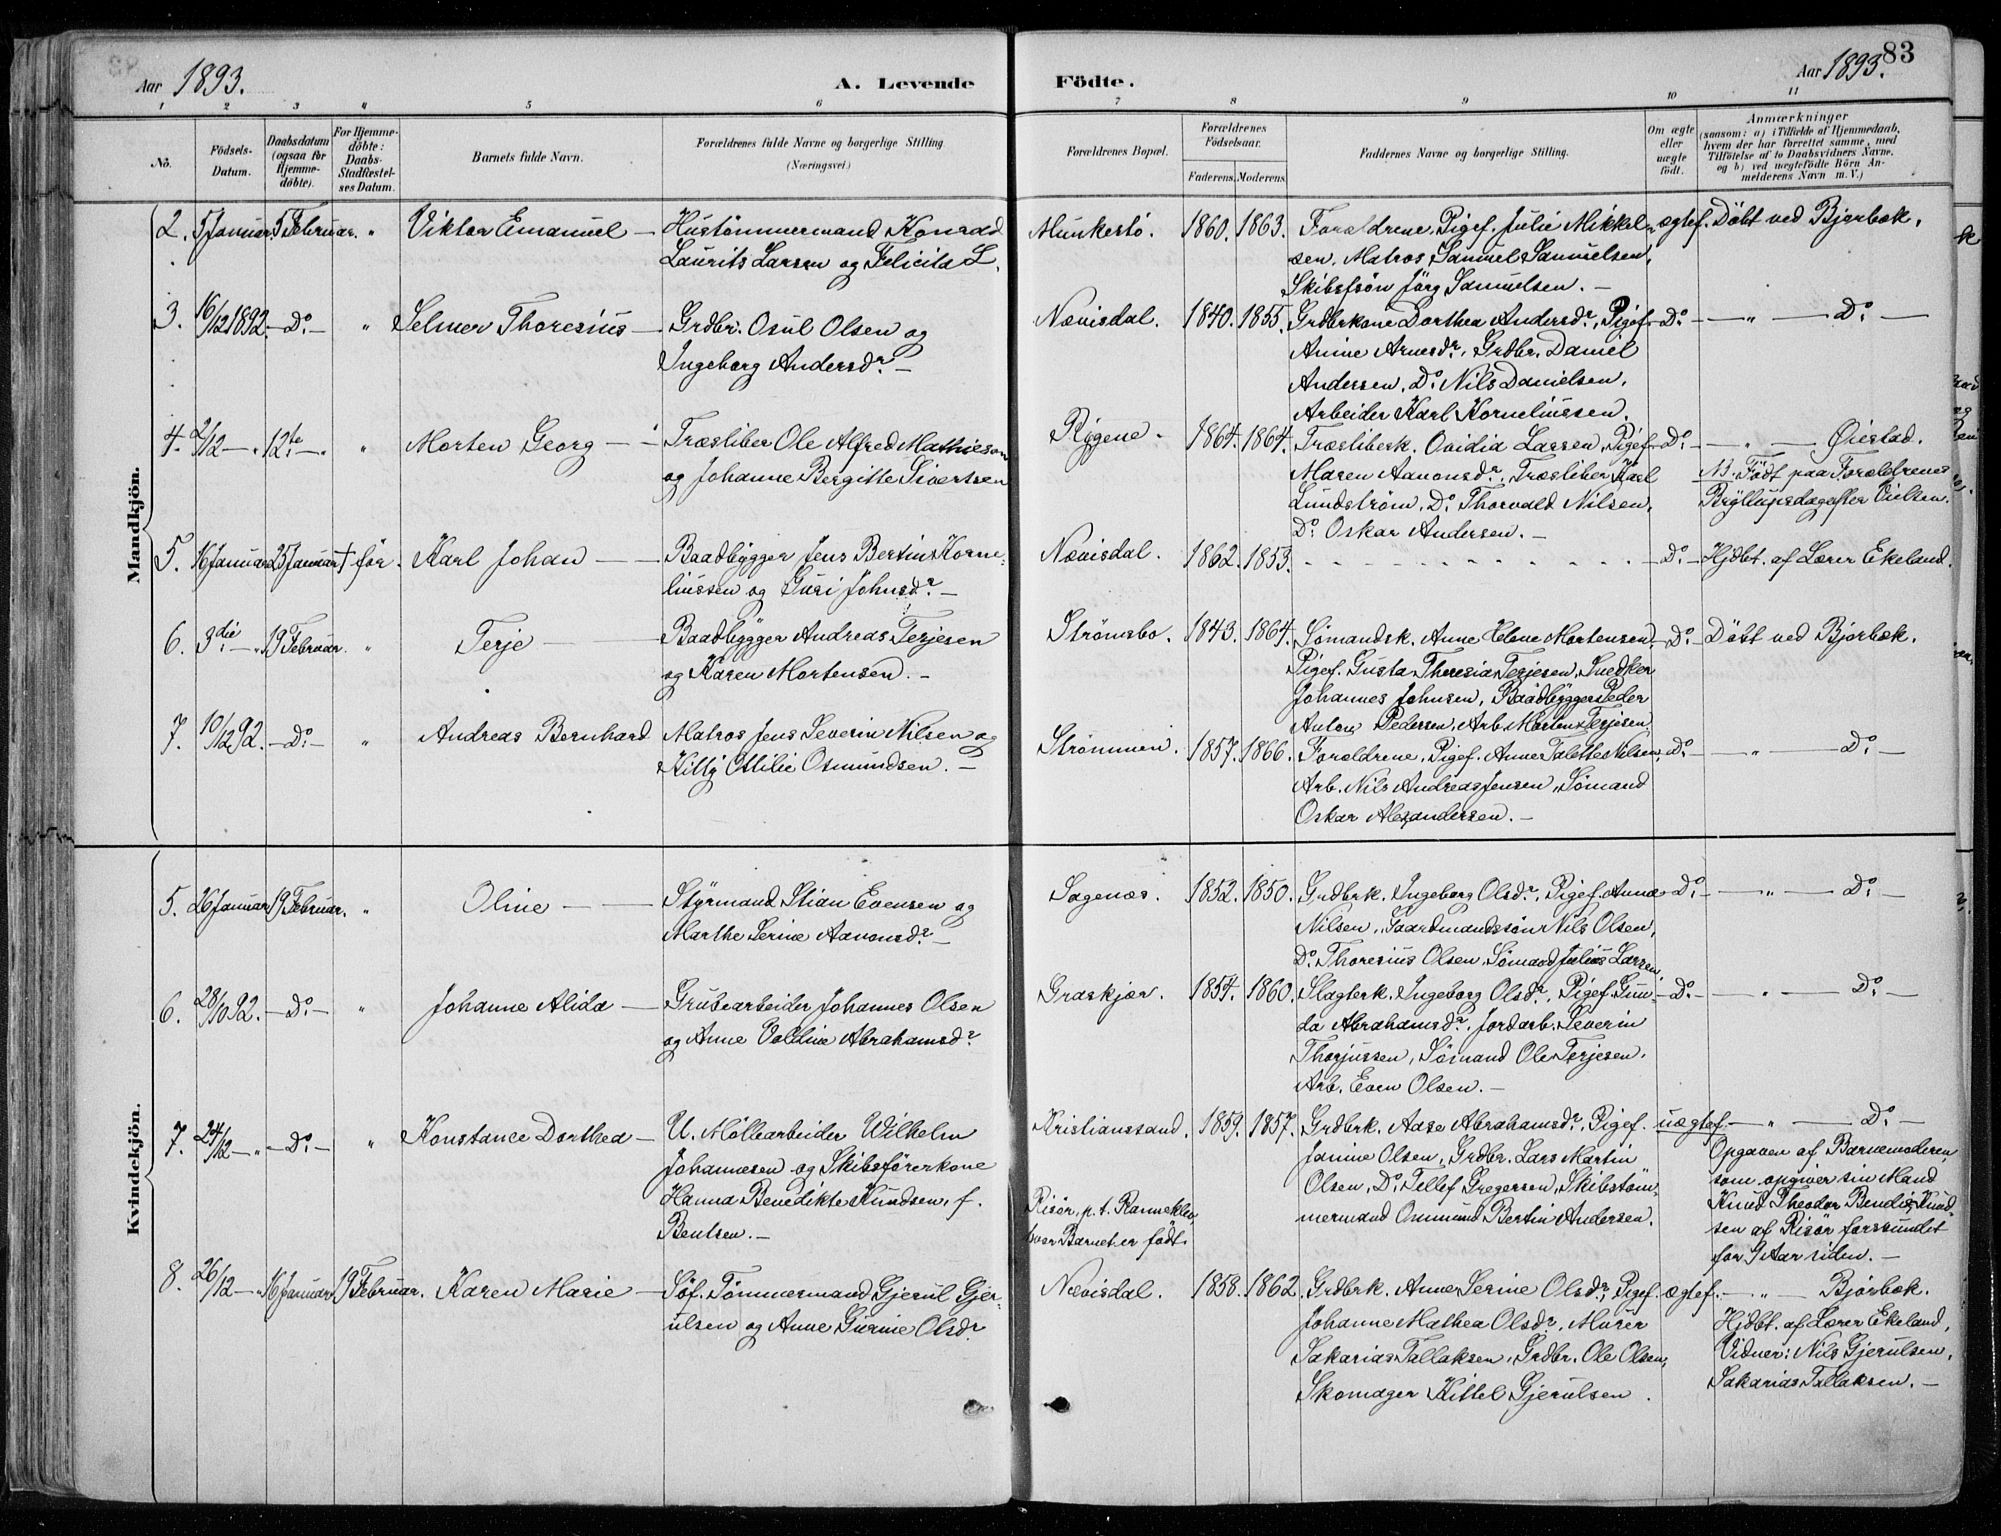 83
Aar 1893.
A. Levende
Fødte.
Aar 1893.
1 2 3 " 5 6 7 8 9 10 11
No.
Fødsels-
Datum.
Daabsdatum
(ogsaa for
Hjemme-
døbte).
For Hjemme-
døbte:
Daabs-
Stadfæstel-
ses Datum.
Barnets fulde Navn.
Forældrenes fulde Navne og borgerlige Stilling
(Næringsvei)
Forældrenes Bopæl.
Forældrenes
Fødselsaar.
Faderens. Moderens.
Faddernes Navne og borgerlige Stilling.
Om ægte
eller
uægte
født.
Anmærkninger
(saasom: a) i Tilfælde af Hjemmedaab,
hvem der har forrettet samme, med
Tilføielse af to Daabsvidners Navne.
og b) ved uægtefødte Børn An-
melderens Navn m. V.)
Mandkjøn.
2. 5 Januar. 5 Februar. " Viktor Emanuel —
Hustømmermand Konrad
Laurits Larsen og Felicita L.
Munkestø. 1860. 1863.
Forældrene, Pigef. Julie Mikkel-
sen, Matros Samuel Samuelsen,
Skibsfsøn Jørg Samuelsen. —
ægtef. Døbt ved Bjorbæk.
3. 16/12 1892. — Do. — " Selmer Thoresius —
Grdbr. Osul Olsen og
Ingeborg Andersdr. —
Nævisdal. 1840. 1855.
Grdbrkone Dorthea Andersdr., Pigef.
Anine Arnesdr., Grdbr. Daniel
Andersen, Do. Nils Danielsen,
Arbeider Karl Korneliussen.
Do. — " — Do. —
4. 2/12 — " 12te — " " Morten Georg —
Træsliber Ole Alfred Mathiesen
og Johanne Bergitte Sivertsen
Rygene. 1864. 1864.
Træsliberk. Ovidia Larsen, Pigef.
Maren Aanonsdr., Træsliber Karl
Lundstrøm, Do. Thorvald Nilsen,
Do. Oskar Andersen. —
Do. — " — Øiestad.
NB. Født paa Forældrenes
Bryllupsdag efter Vielsen.
5. 16 Januar 25 Januar † før. Karl Johan —
Baadbygger Jens Bertin Korne-
liussen og Guri Johnsdr. —
Nævisdal. 1862. 1853.
Do. Hjdbt. af Lærer Ekeland.
6. 3die — " 19 Februar. " Terje —
Baadbygger Andreas Terjesen
og Karen Mortensen. —
Strømsbo. 1843. 1864.
Sømandsk. Anne Helene Mortensen,
Pigef. Gusta Theresia Terjesen, Snedker
Johannes Johnsen, Baadbygger Peder
Anton Pedersen, Arb. Morten Terjesen.
Do. Døbt ved Bjorbæk.
7. 10/12 92. — Do. — " Andreas Bernhard
Matros Jens Severin Nilsen og
Kitty Ottilie Osmundsen. —
Strømmen. 1857. 1866.
Forældrene, Pigef. Anne Talette Nilsen,
Arb. Nils Andreas Jensen, Sømand
Oskar Alexandersen. —
Do. — " — Do. —
Kvindekjön.
5. 26 Januar 19 Februar. " Oline —
Styrmand Stian Evensen og
Marthe Serine Aanonsdr. —
Sagenæs. 1852. 1850.
Grdbrk. Ingeborg Olsdr., Pigef. Anna
Nilsen, Gaardmandssøn Nils Olsen,
Do. Thoresius Olsen, Sømand Julius Larsen.
Do. — " — Do. —
6. 28/10 92. — Do. — " Johanne Alida —
Grubearbeider Johannes Olsen
og Anne Voldine Abrahamsdr.
Graskjær. 1854. 1860.
Slagterk. Ingeborg Olsdr., Pigef. Gun-
da Abrahamsdr., Jordarb. Severin
Thorjussen, Sømand Ole Terjesen,
Arb. Even Olsen. —
Do. — " — Do. —
7. 24/12 — " — Do. — " Konstance Dorthea —
U. Møllearbeider Wilhelm
Johannesen og Skibsførerkone
Hanna Benedikte Knudsen, f.
Bentsen. —
Kristianssand. 1859. 1857.
Risør, p. t. Ranneklev,
hvor Barnet er født.
Grdbrk. Aase Abrahamsdr., Pigef.
Janine Olsen, Grdbr. Lars Martin
Olsen, Do. Tellef Gregersen, Skibstøm-
mermand Osmund Bertin Andersen.
uægtef. — " — Do. —
Opgaven af Barnemoderen,
som opgiver sin Mand
Knud Theodor Bendix Knud-
sen af Risør forsvundet
for 9 Aar siden. —
8. 26/12 — " 16 Januar 19 Februar. Karen Marie —
Søf. Tømmermand Gjerul Gjer-
ulsen og Anne Gurine Olsdr.
Nævisdal. 1858. 1862.
Grdbrk. Anne Serine Olsdr., Pigef.
Johanne Mathea Olsdr., Murer
Sakarias Tallaksen, Grdbr. Ole Olsen,
Skomager Kittel Gjerulsen.
ægtef. — " — Bjorbæk.
Hjdbt. af Lærer Ekeland,
Vidner: Nils Gjerulsen,
Sakarias Tallaksen. —